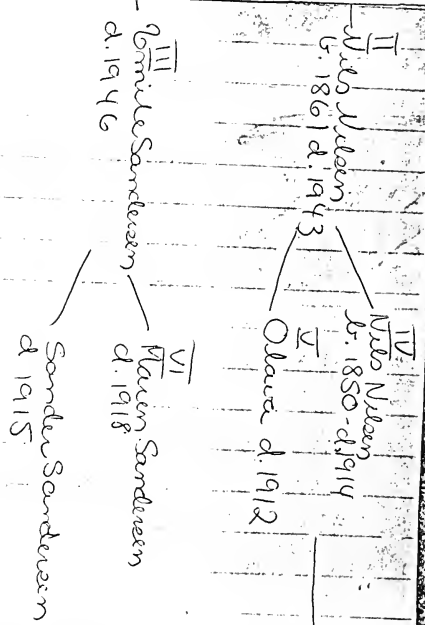 II
Nils Nilsen
b. 1861 d. 1943
IV
Nils Nilsen
b. 1850-d. 1914
V
Olava d. 1912
III
Emilie Sandersen
d. 1946
VI
Maren Sandersen
d. 1918
Sander Sandersen
d 1915